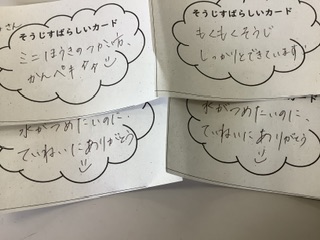 さん
そうじすばらしいカード
ミニほうきのつかい方、
かんペキ
そうじすばらしいカード
もくもくそうじ
しっかりとできています!
水がつめたいのに、
ていねいにありがとう
カード
水がつめたいのに、
ていねいにありがとう